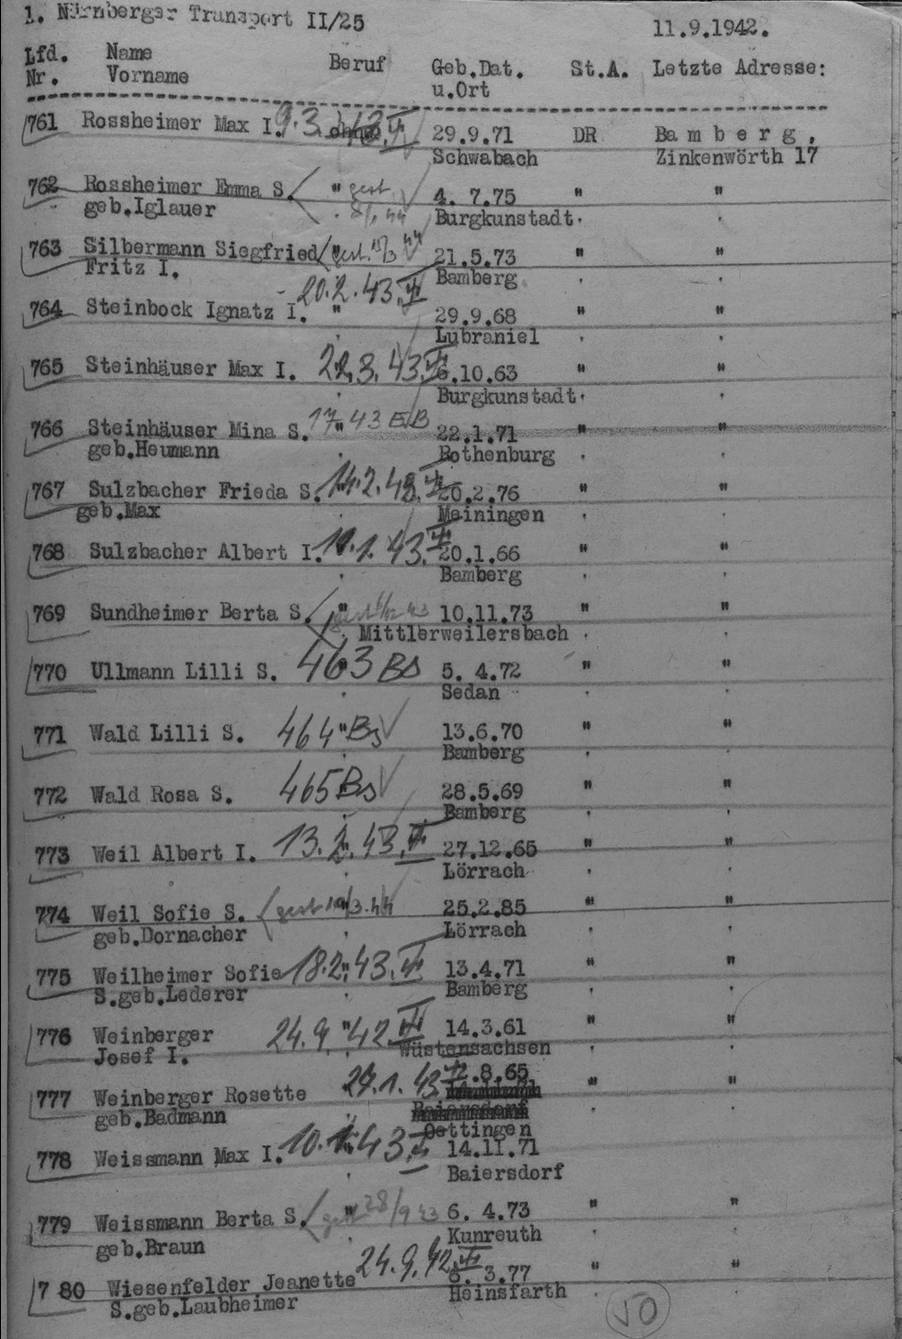 1. Nürnberger Transport II/25
11.9.1942.
Lfd. Name Beruf Geb.Dat. St.A. Letzte Adresse:
Nr. Vorname u.Ort
761 Rossheimer Max I. 9.3. 43 ohne 29.9.71 DR Bamberg,
Schwabach Zinkenwörth 17
762 Rossheimer Emma S. " gest. 4. 7.75 " "
geb.Iglauer Burgkunstadt
763 Silbermann Siegfried " gest. 21.5.73 " "
Fritz I. Bamberg
20.2.43.
764 Steinbock Ignatz I. " 29.9.68 " "
Lubraniel
765 Steinhäuser Max I. 22.3.43. 6.10.63 " "
Burgkunstadt
766 Steinhäuser Mina S. " 43 22.1.71 " "
geb.Heumann Rothenburg
767 Sulzbacher Frieda S. 14.2.43. 20.2.76 " "
geb.Max Meiningen
768 Sulzbacher Albert I. 43. 20.1.66 " "
Bamberg
769 Sundheimer Berta S. " gest 43 10.11.73 " "
Mittlerweilersbach
770 Ullmann Lilli S. 463 Bs 5. 4.72 " "
Sedan
771 Wald Lilli S. 464 " Bs 13.6.70 " "
Bamberg
772 Wald Rosa S. 465 Bs 28.5.69 " "
Bamberg
773 Weil Albert I. 13.2.43. 27.12.65 " "
Lörrach
774 Weil Sofie S. gest 25.2.85 " "
geb.Dornacher Lörrach
775 Weilheimer Sofie 18.2.43. 13.4.71 " "
S.geb.Lederer Bamberg
776 Weinberger 24.9. " 42 14.3.61 " "
Josef I. Wüstensachsen
777 Weinberger Rosette 1. 43 2.8.65 " "
geb.Badmann
Oettingen
778 Weissmann Max I. 10. 43 14.11.71
Baiersdorf
779 Weissmann Berta S. gest " 28/9 43 6. 4.73 " "
geb.Braun Kunreuth
24.9.42
780 Wiesenfelder Jeanette 8. 3.77 " "
S.geb.Laubheimer Heinsfarth
50